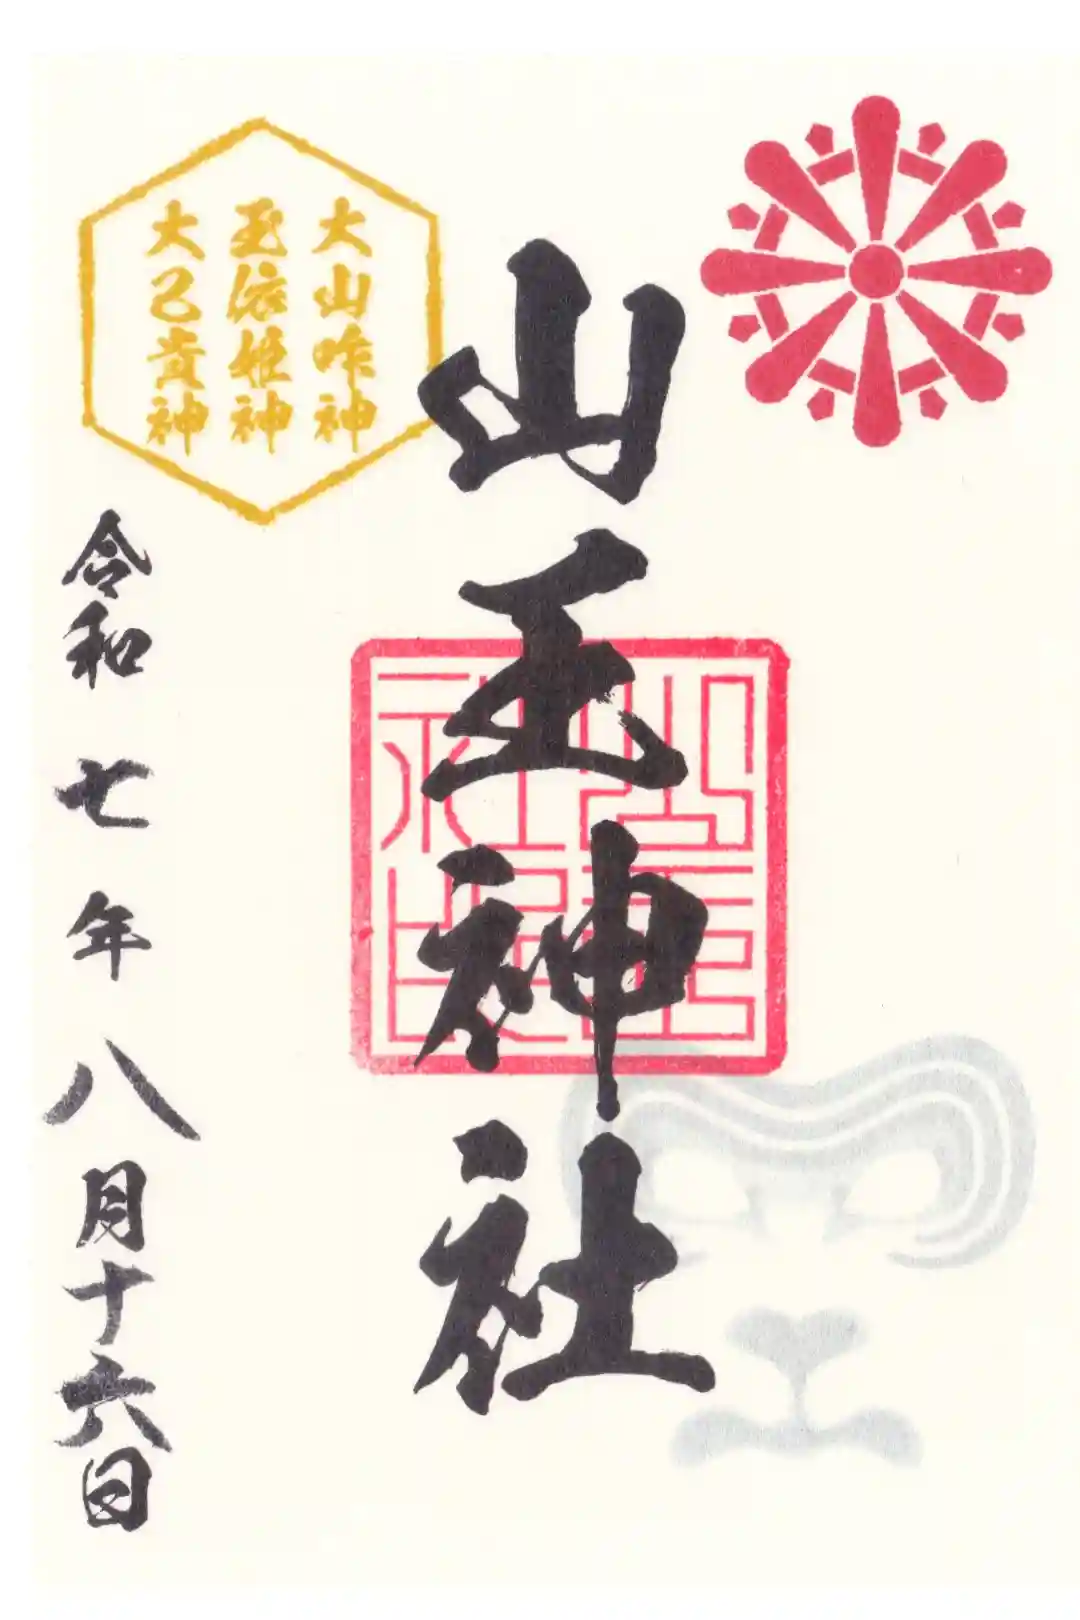 大山咋神
玉依姫神
大己貴神
山王神社
山王
神社
令和七年八月十六日